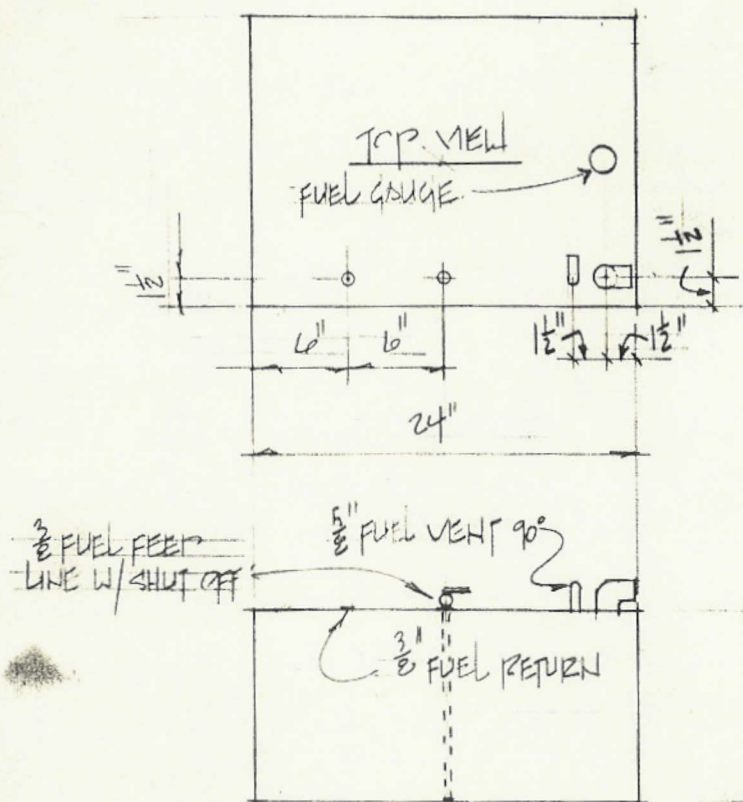 TOP VIEW
FUEL GAUGE
1 1/2"
1 1/2"
6"
6"
1 1/2"
1 1/2"
24"
3/8 FUEL FEED
LINE W/ SHUT OFF
5/8" FUEL VENT 90°
3/8" FUEL RETURN